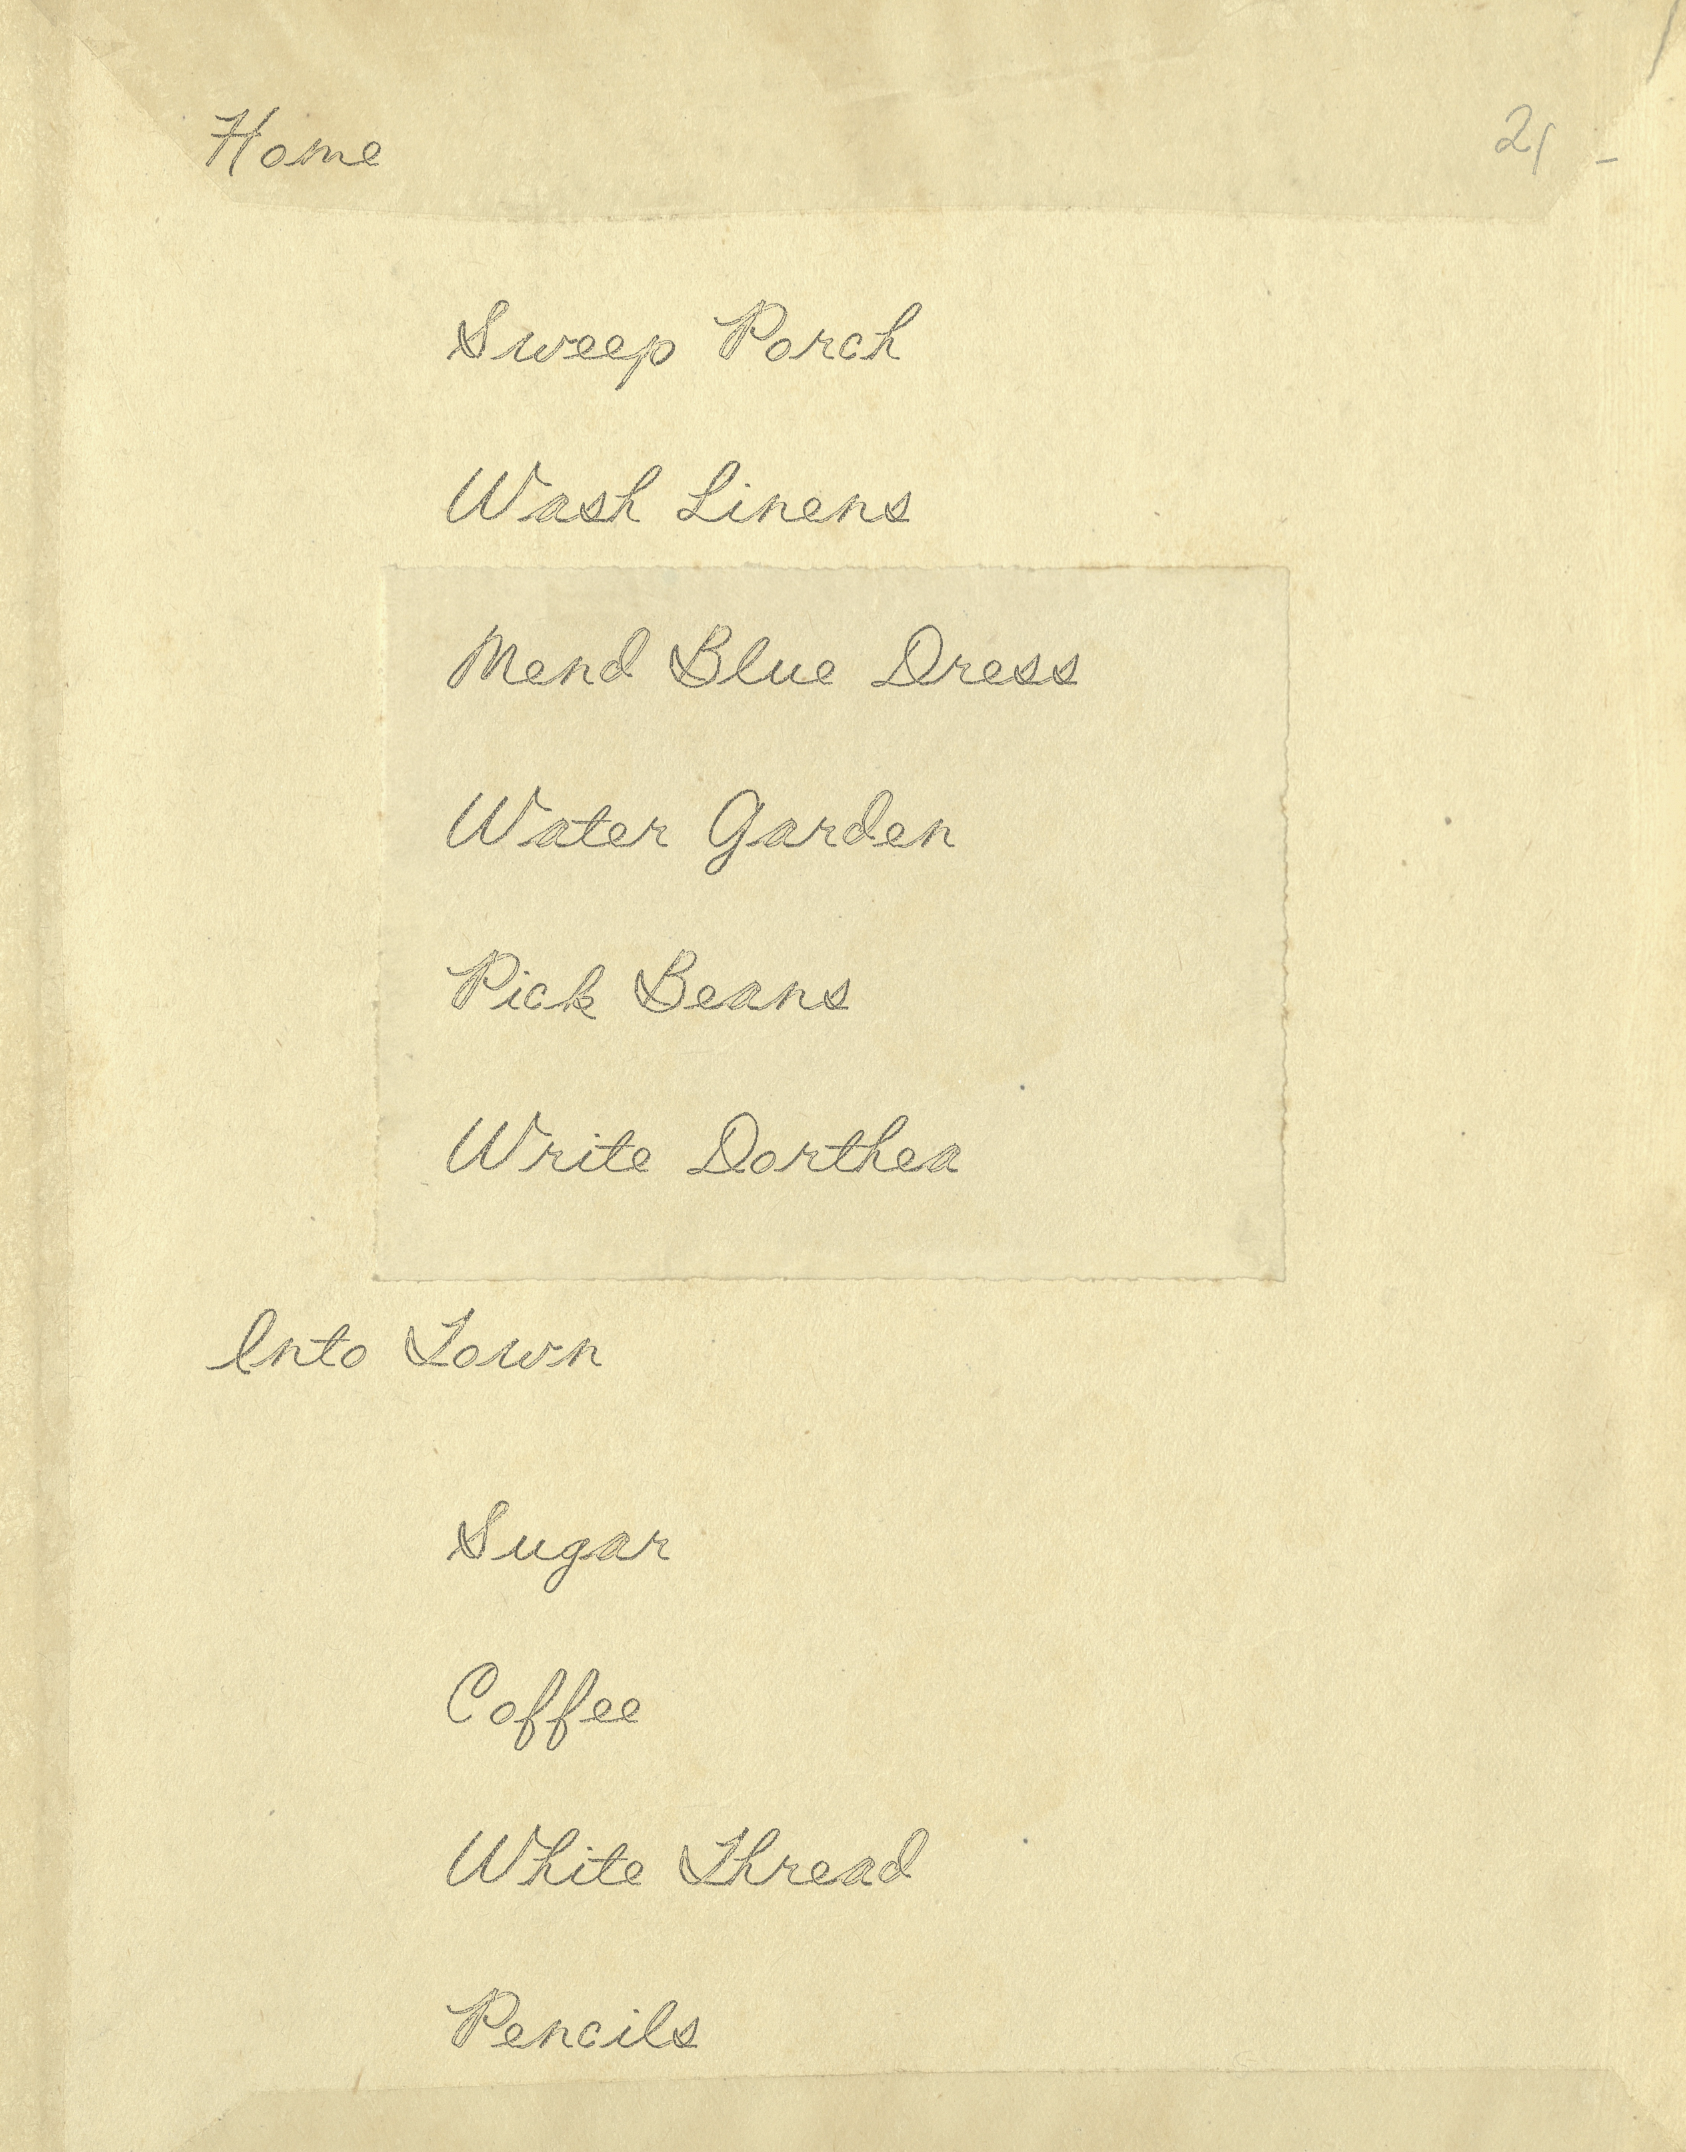 Home
Sweep Porch
Wash Linens
Mend Blue Dress
Water Garden
Pick Beans
Write Dorthea
Into Town
Sugar
Coffee
White Thread
Pencils